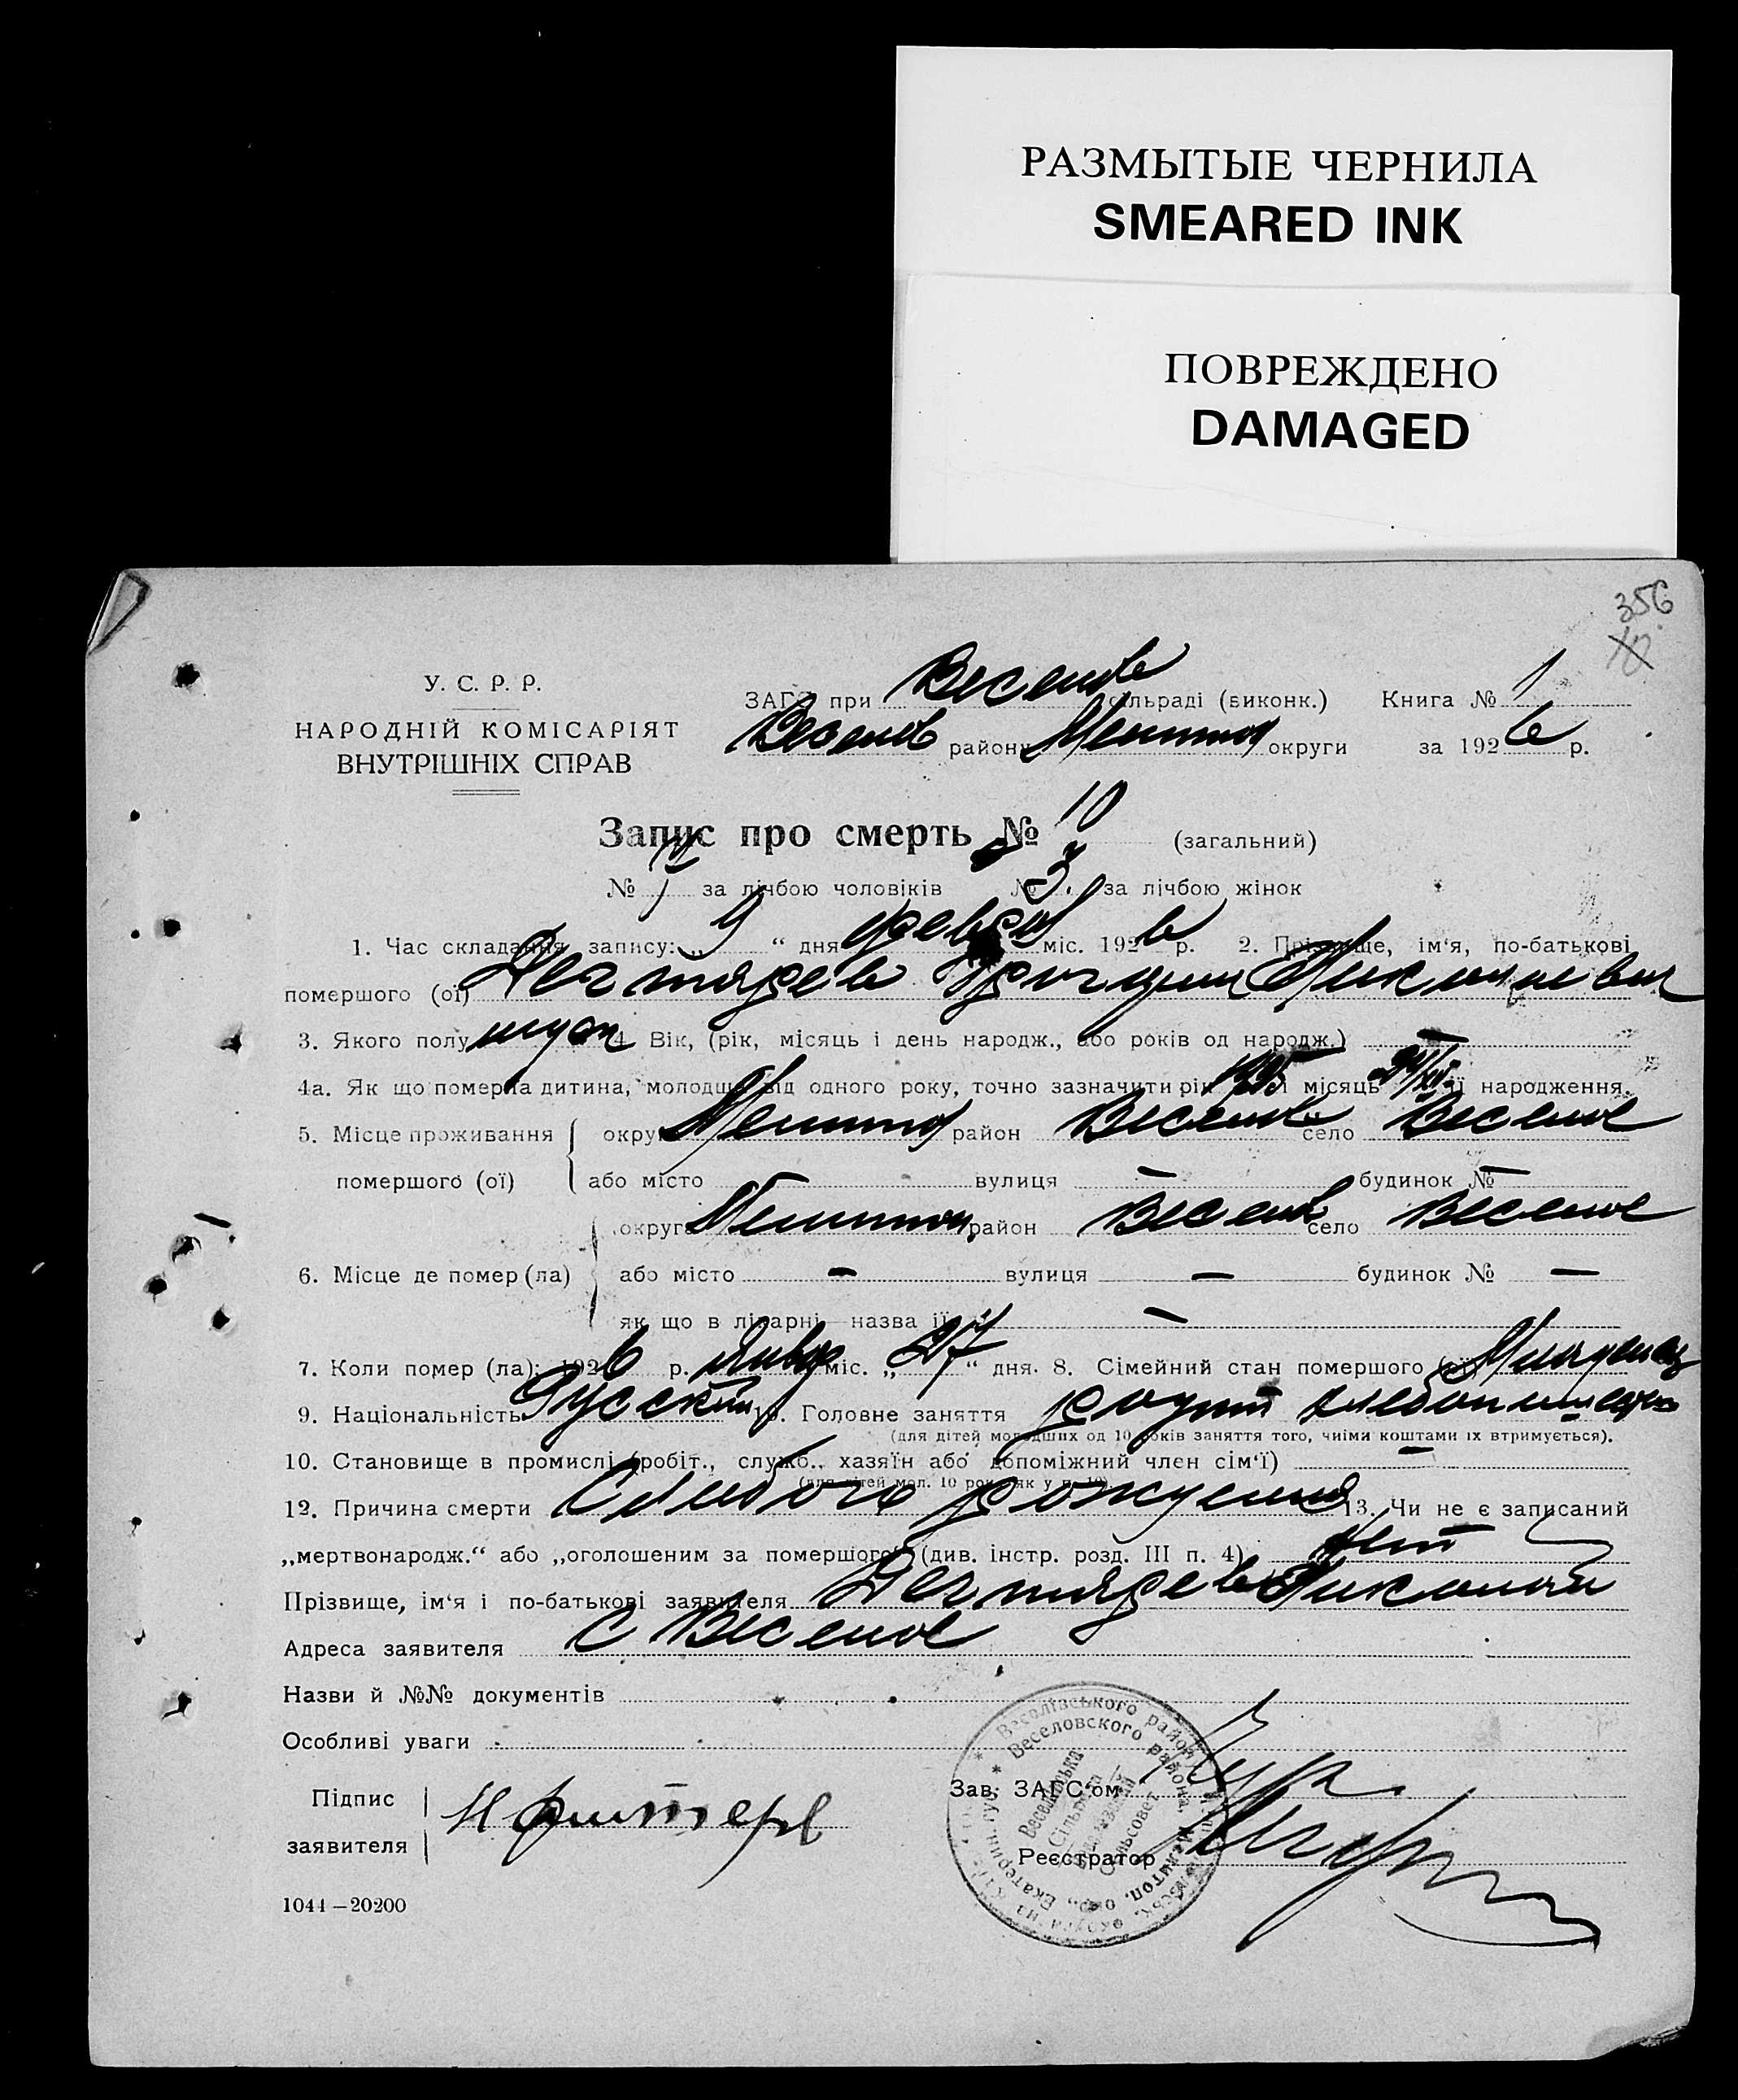 РАЗМЫТЫЕ ЧЕРНИЛА
SMEARED INK
ПОВРЕЖДЕНО
DAMAGED
356
У. С. Р. Р.
НАРОДНІЙ КОМІСАРІЯТ
ВНУТРІШНІХ СПРАВ
ЗАГС при Веселов сільраді (виконк.) Книга № 1
Веселов району Мелитоп округи за 1926 р.
Запис про смерть № 10 (загальний)
№ за лічбою чоловіків № 3 за лічбою жінок
1. Час складання запису: „ 9 “ дня феврал міс. 1926 р. 2. Прізвище, ім‘я, по-батькові
помершого (ої) Дегтярев Николаевич
3. Якого полу муж 4. Вік, (рік, місяць і день народж., або років од народж.) —
4а. Як що померла дитина, молодша від одного року, точно зазначити рік 1925 і місяць її народження.
5. Місце проживання округа Мелитоп район Веселов село Веселое
помершого (ої) або місто вулиця — будинок № —
округа Мелитоп район Веселов село Веселое
6. Місце де помер (ла) або місто — вулиця — будинок № —
як що в лікарні—назва її —
7. Коли помер (ла): 1926 р. Январ міс. „ 27 “ дня. 8. Сімейний стан помершого (ої) Младенец
9. Національність Русский Головне заняття родит хлебопашец
(для дітей молодших од 10 років заняття того, чиїми коштами їх втримується).
10. Становище в промислі (робіт., служб., хазяїн або допоміжний член сім‘ї) —
(для дітей мол. 10 рок. як у п. 10)
12. Причина смерти Слабого рождения 13. Чи не є записаний
„мертвонародж.“ або „оголошеним за помершого“ (див. інстр. розд. III п. 4) Нет
Прізвище, ім‘я і по-батькові заявителя Дегтярев Николай
Адреса заявителя С Веселое
Назви й №№ документів
Особливі уваги
Підпис
заявителя
Зав. ЗАГС‘ом
Реєстратор
Веселівського район
Веселовского района, Мелитоп. окр., Екатерин. губ.
Веселівська
Сільрада
Сельсовет
1044—20200